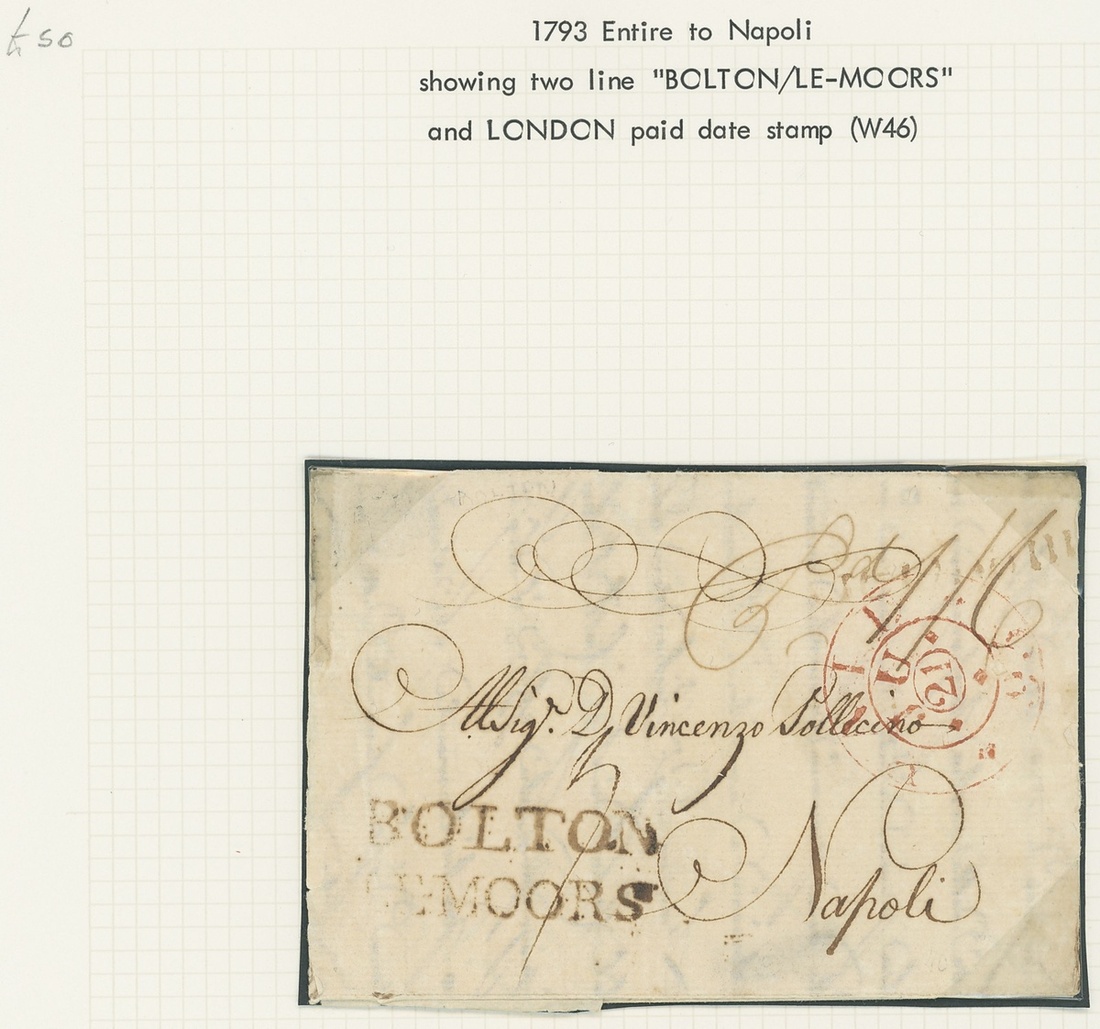 £50
1793 Entire to Napoli
showing two line "BOLTON/LE-MOORS"
and LONDON paid date stamp (W46)
Pd 1/1
Al Sigr. Dn Vincenzo Pollecino
21
BOLTON
LE MOORS
Napoli